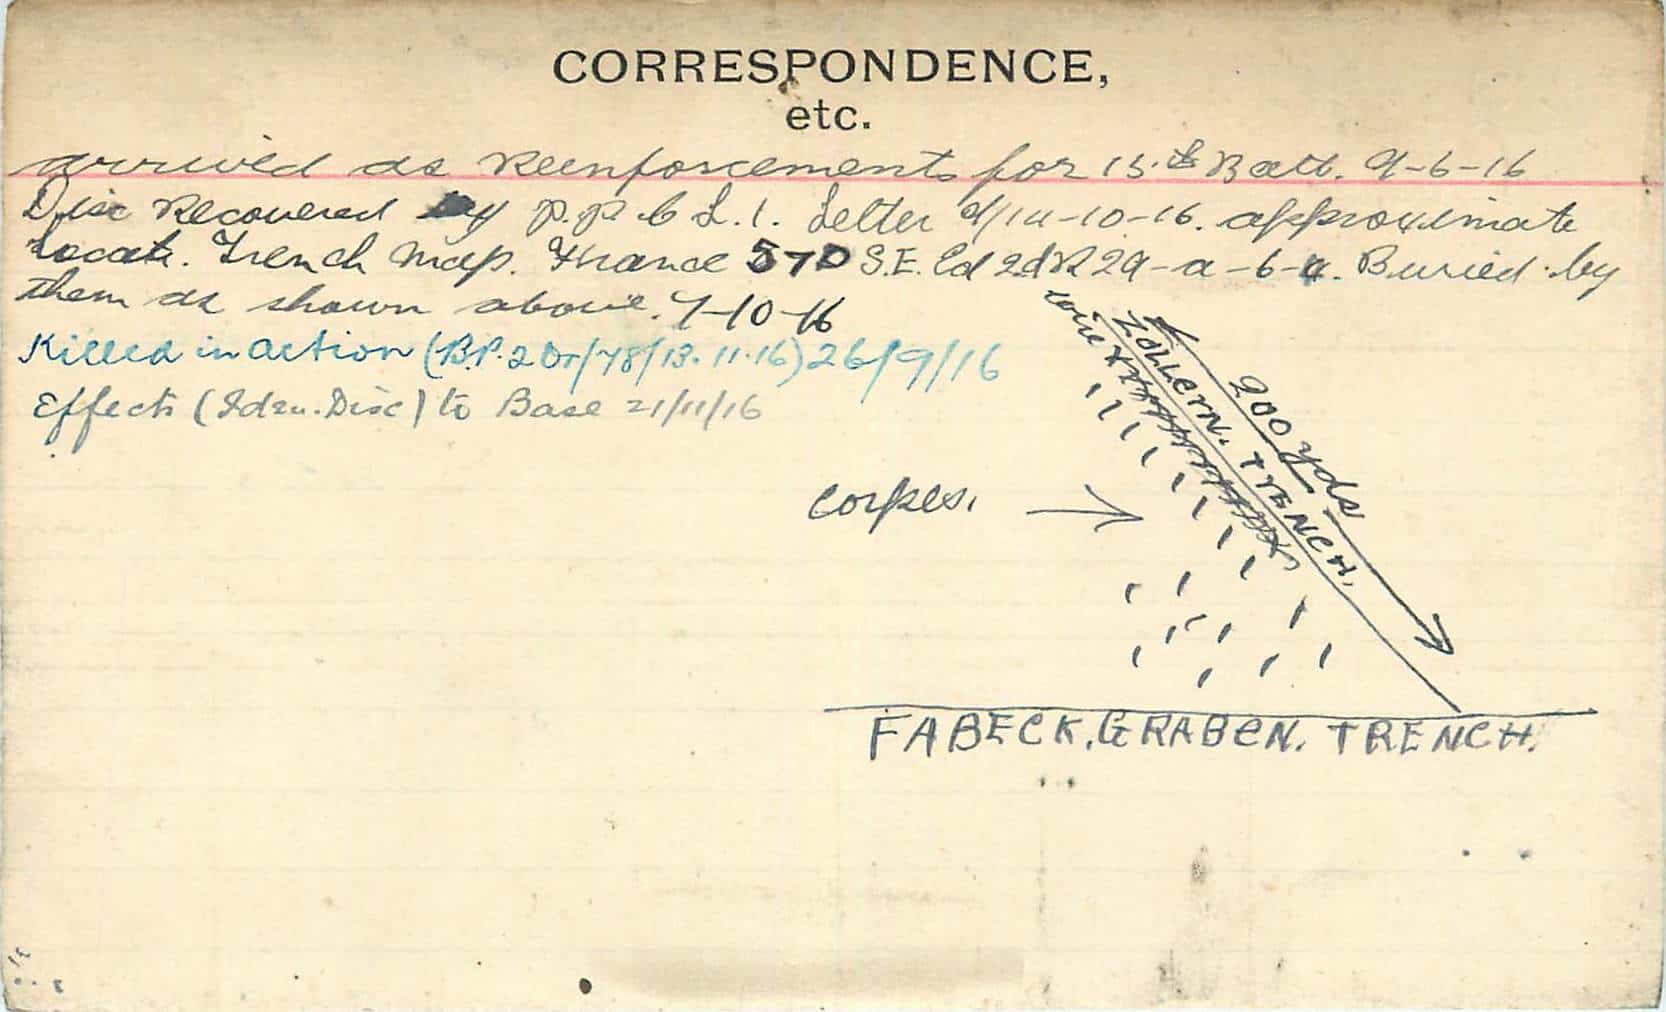 CORRESPONDENCE,
etc.
arrived as Reenforcements for 15.th Batt. 9-6-16
Disc Recovered by P.P.C.L.I. Letter d/14-10-16. approximate
Locat. Trench Map. France 57D S.E. Ed 2d R29-a-6-4. Buried by
them as shown above. 7-10-16
Killed in action (B.P. 2 Or/78/13.11.16) 26/9/16
Effects (Iden. Disc) to Base 21/11/16
wire
ZOLLERN. TRENCH.
200 yds
Corpses.
FABECK. GRABEN. TRENCH.